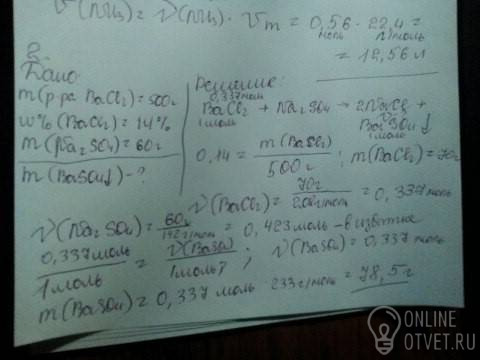 ν(NH₃) = ν(NH₃) · Vm = 0,56 · 22,4 =
моль л/моль
= 12,56 л
2
Дано:
m(р-ра BaCl₂) = 500г
w%(BaCl₂) = 14%
m(Na₂SO₄) = 60г
m(BaSO₄↓) - ?
Решение:
0,337моль
BaCl₂ + Na₂SO₄ → 2NaCl +
1моль
BaSO₄↓
0,14 = m(BaCl₂) / 500г ; m(BaCl₂) = 70г
ν(BaCl₂) = 70г / 208г/моль = 0,337моль
ν(Na₂SO₄) = 60г / 142г/моль = 0,423моль – в избытке
0,337моль / 1моль = ν(BaSO₄) / 1моль ; ν(BaSO₄) = 0,337моль
m(BaSO₄) = 0,337 моль 233г/моль = 78,5г
ONLINE
OTVET.RU